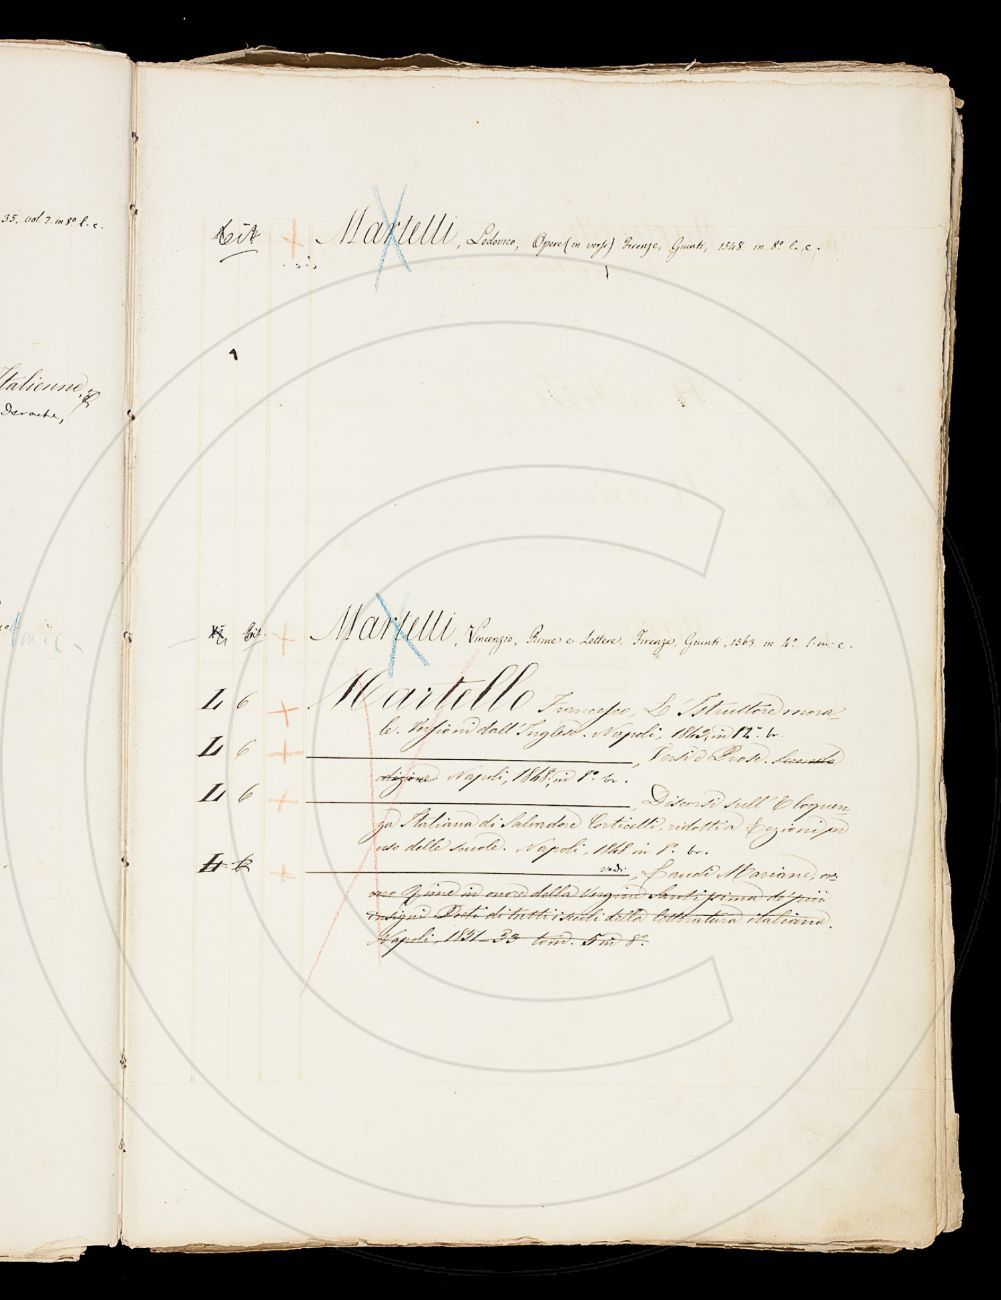 35. vol. 7. in 8º l. c.
Italienne,
Martelli, Lodovico, Opere (in verso) Firenze, Giunti, 1548 in 8º. l. c.
Bit. Martelli, Vincenzio, Rime e Lettere. Firenze, Giunti, 1563. in 4º. l. m. c.
L 6 Martello Francesco, L'Istruttore mora-
le. Versioni dall'Inglese. Napoli, 1843, in 12º. br.
L 6 , Versi e Prose. Seconda
edizione. Napoli, 1848, in 8º. br.
L 6 , Discorsi sull'Eloquen-
za Italiana di Salvadore Corticelli, ridotti a Lezioni per
uso delle scuole. Napoli, 1848 in 8º. br.
L 6 vedi, Laudi Mariane, ov-
vero Rime in onore della Vergine Santissima de' più
insigni Poeti di tutti i secoli della letteratura italiana.
Napoli, 1851-53 tom. 5 in 8º.